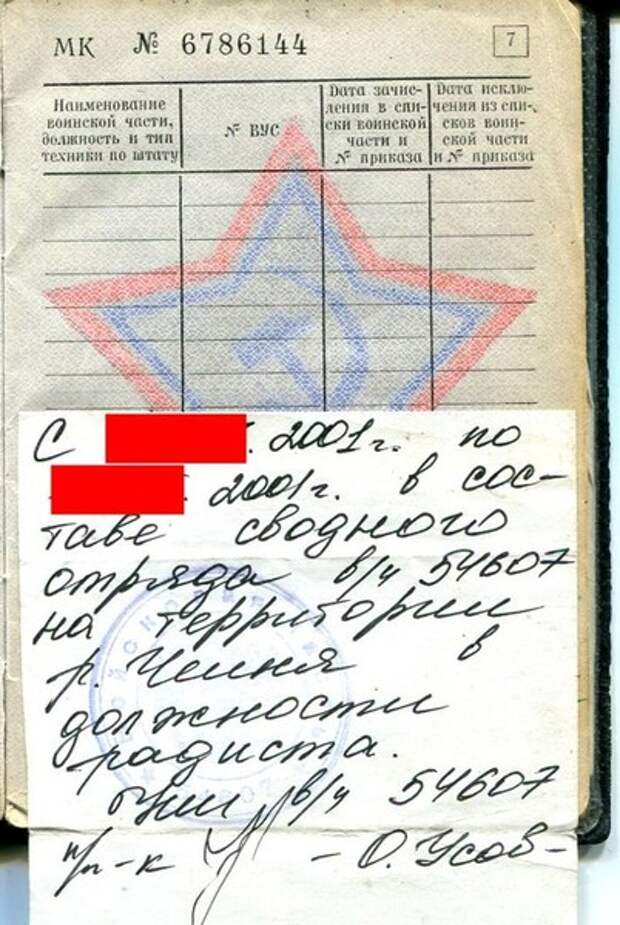 МК № 6786144
7
Наименование воинской части, должность и тип техники по штату
№ ВУС
Дата зачисления в списки воинской части и № приказа
Дата исключения из списков воинской части и № приказа
С 2001г. по
2001г. в сос-
таве сводного
отряда в/ч 54607
на территории
р. Чечня в
должности
радиста.
в/ч 54607
п/п-к - О. Усов -